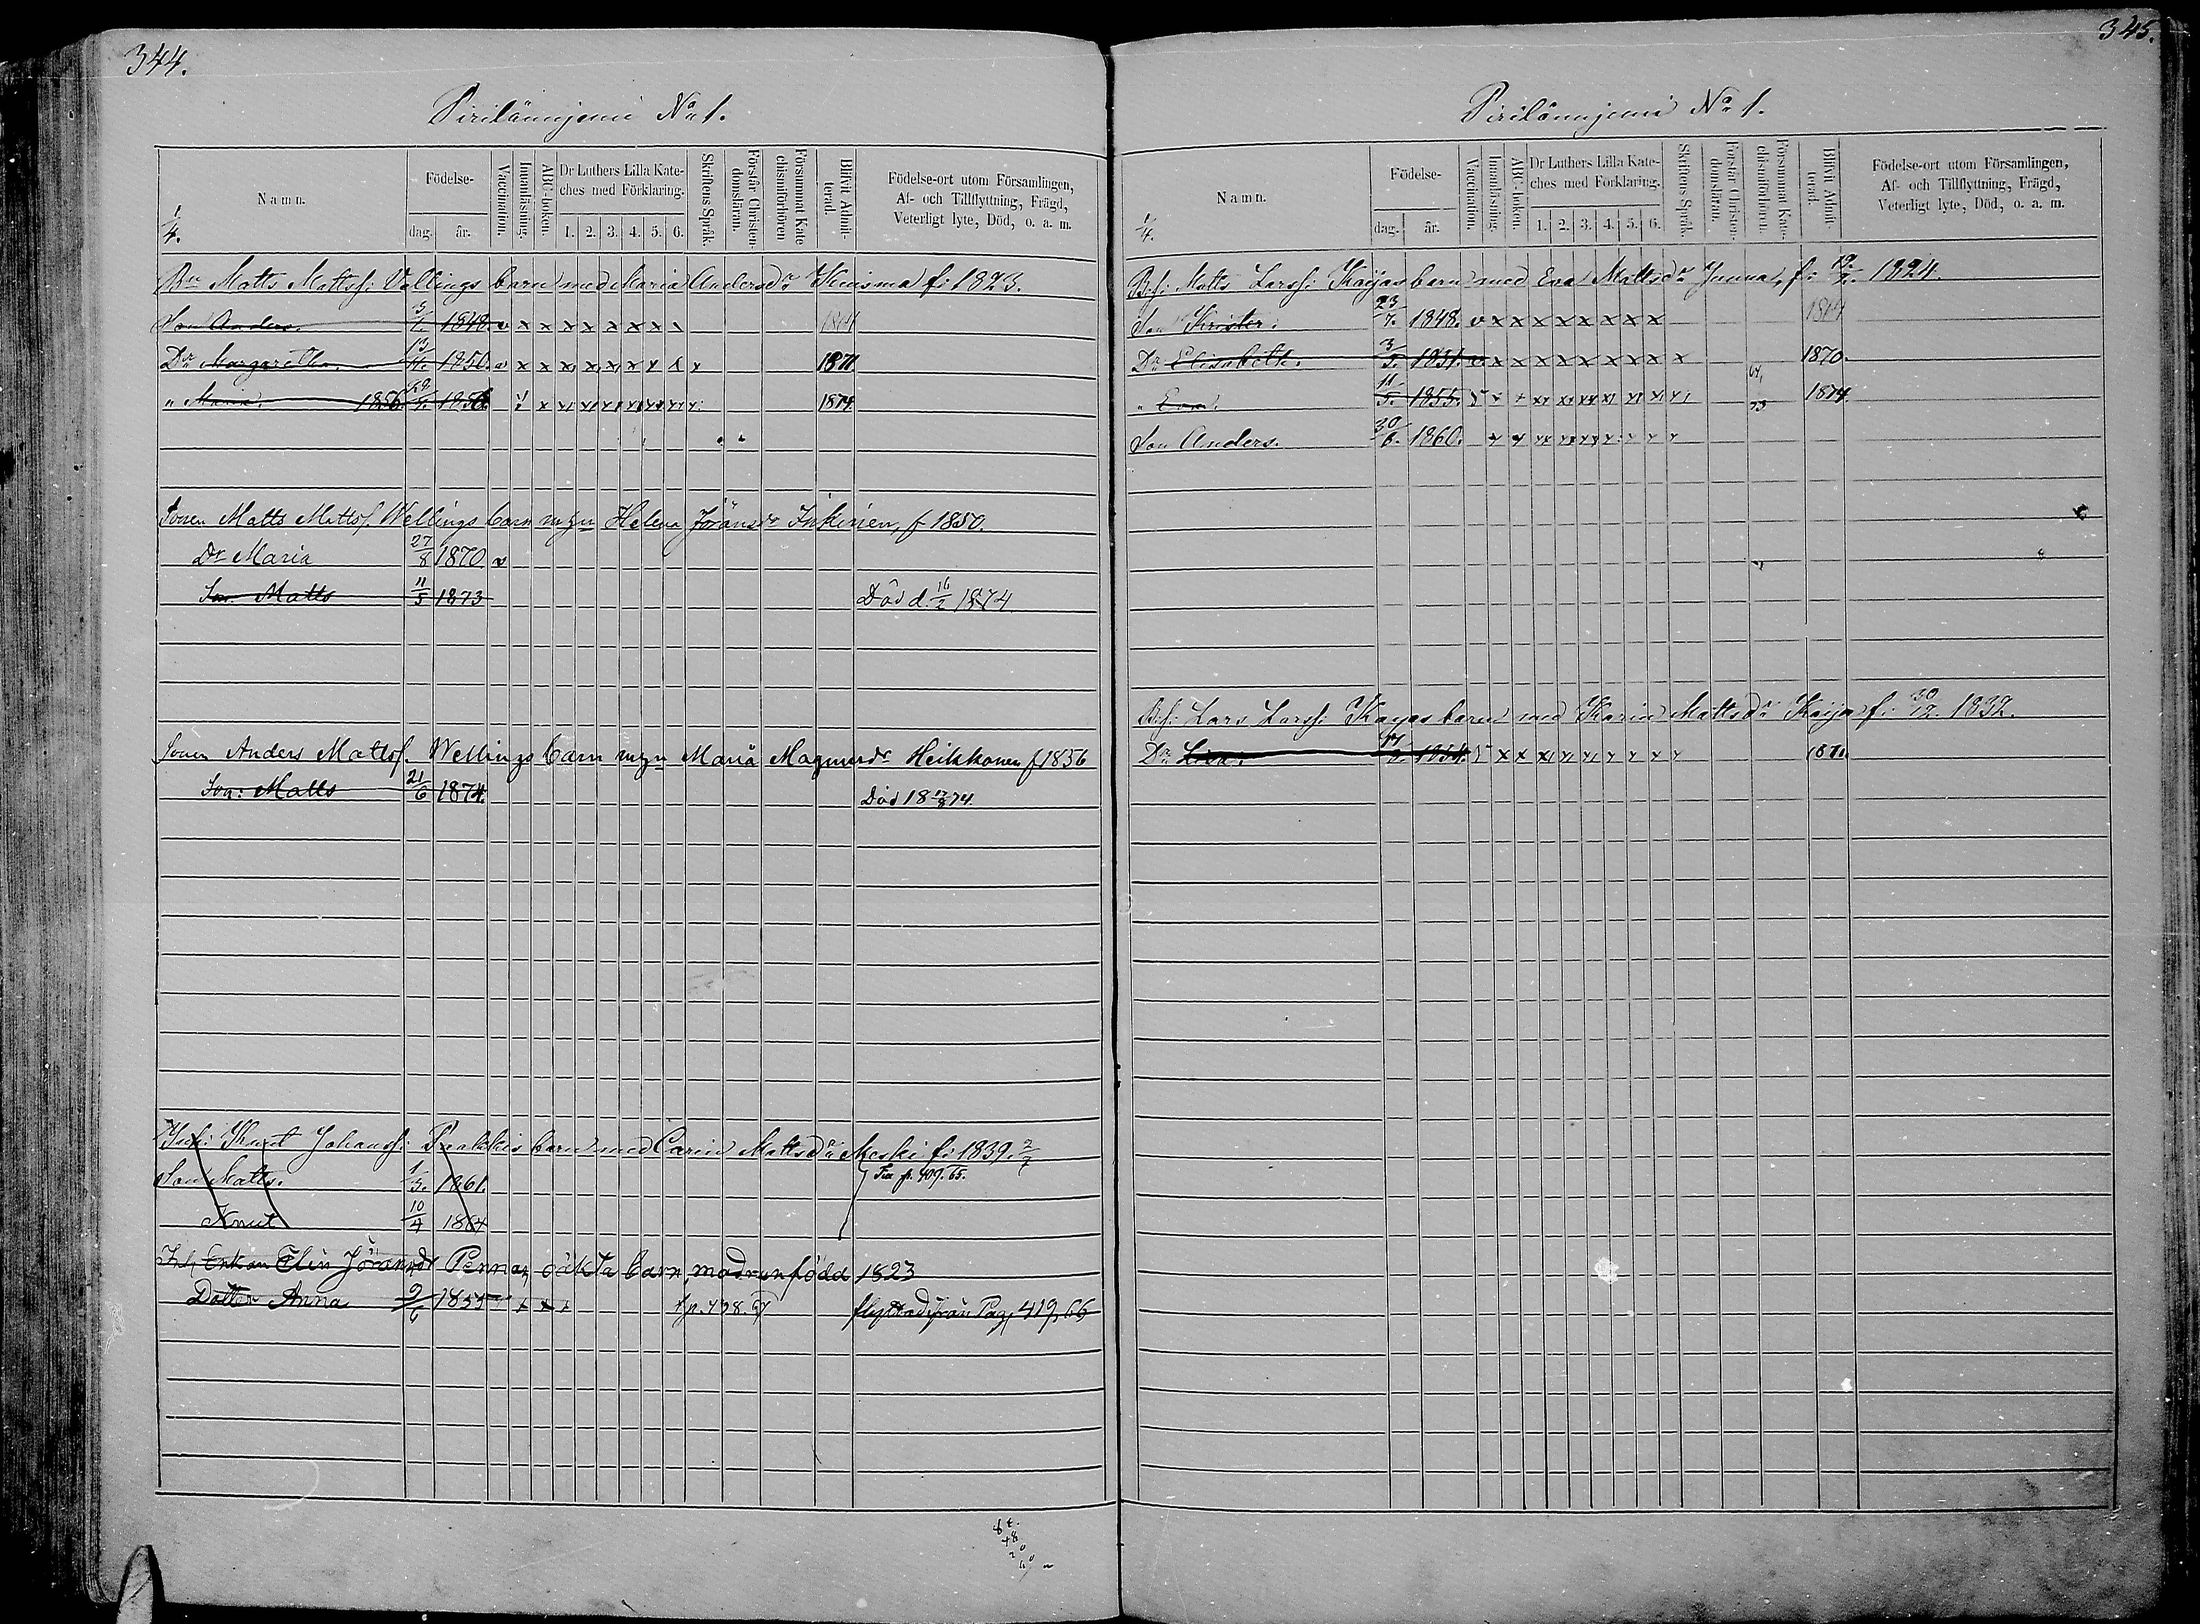 344.
Pirilänmjeni No 1.
Namn.
Födelse-
dag.
år.
Vaccination.
Innanläsning.
ABC-boken.
Dr Luthers Lilla Kate-
ches med Förklaring.
1. 2. 3. 4. 5. 6.
Skriftens Språk.
Förstår Christen-
domsläran.
Försummat Kate
chismiförhören
Blifvit Admit-
terad.
Födelse-ort utom Församlingen,
Af- och Tillflyttning, Frägd,
Veterligt lyte, Död, o. a. m.
1/4.
Matts Mattss: Vellings barn med Maria Andersdr Kuisma f: 1823.
Son Anders. 1848. v x x x x x x x x
Dr Margaretha. 1850. v x x x x x x x x 1871
" Maria. 1856 1856. 1874
Sonen Matts Mattss. Wellings barn m/n Helena Jöransdr Inkinen, f 1850.
Dr Maria 27/8 1870 v
Son Matts 11/5 1873 Död d. 16/2 1874
Sonen Anders Mattss. Wellings barn m/n Maria Magnusdr Heikkonen f 1856
Son: Matts 21/6 1874. Död 18 17/8 74.
Inh: Knut Johanss: barn med Carin Mattsdr Meski f: 1839. 2/7
Son Matts. 1/3. 1861. fr p. 409. 65.
Knut 10/4 1864
Enkan Elin Jöransdr Pennan, oäkta barn, modren född 1823
Dotter Anna 2/6 1855 x x x p. 438. 67 flyttad ifrån Pag, 419, 66
345.
Pirilänmjeni No 1.
Namn.
Födelse-
dag.
år.
Vaccination.
Innanläsning.
ABC-boken.
Dr Luthers Lilla Kate-
ches med Förklaring.
1. 2. 3. 4. 5. 6.
Skriftens Språk.
Förstår Christen-
domsläran.
Försummat Kate-
chismiförhören.
Blifvit Admit-
terad.
Födelse-ort utom Församlingen,
Af- och Tillflyttning, Frägd,
Veterligt lyte, Död, o. a. m.
1/4.
B:s: Matts Larss: Kaijas barn med Eva Mattsdr Junna, f: 1824.
Son Krister. 23/7. 1848. v x x x x x x x x
Dr Elisabeth. 3/5. 1851. v x x x x x x x x x 1870.
" Eva. 11/5. 1855. 1874.
Son Anders. 30/6. 1860.
B:s: Lars Larss: Kayas barn med Maria Mattsdr Kaija f: 30/12. 1832.
Dr Lisa: 1854. 1871.